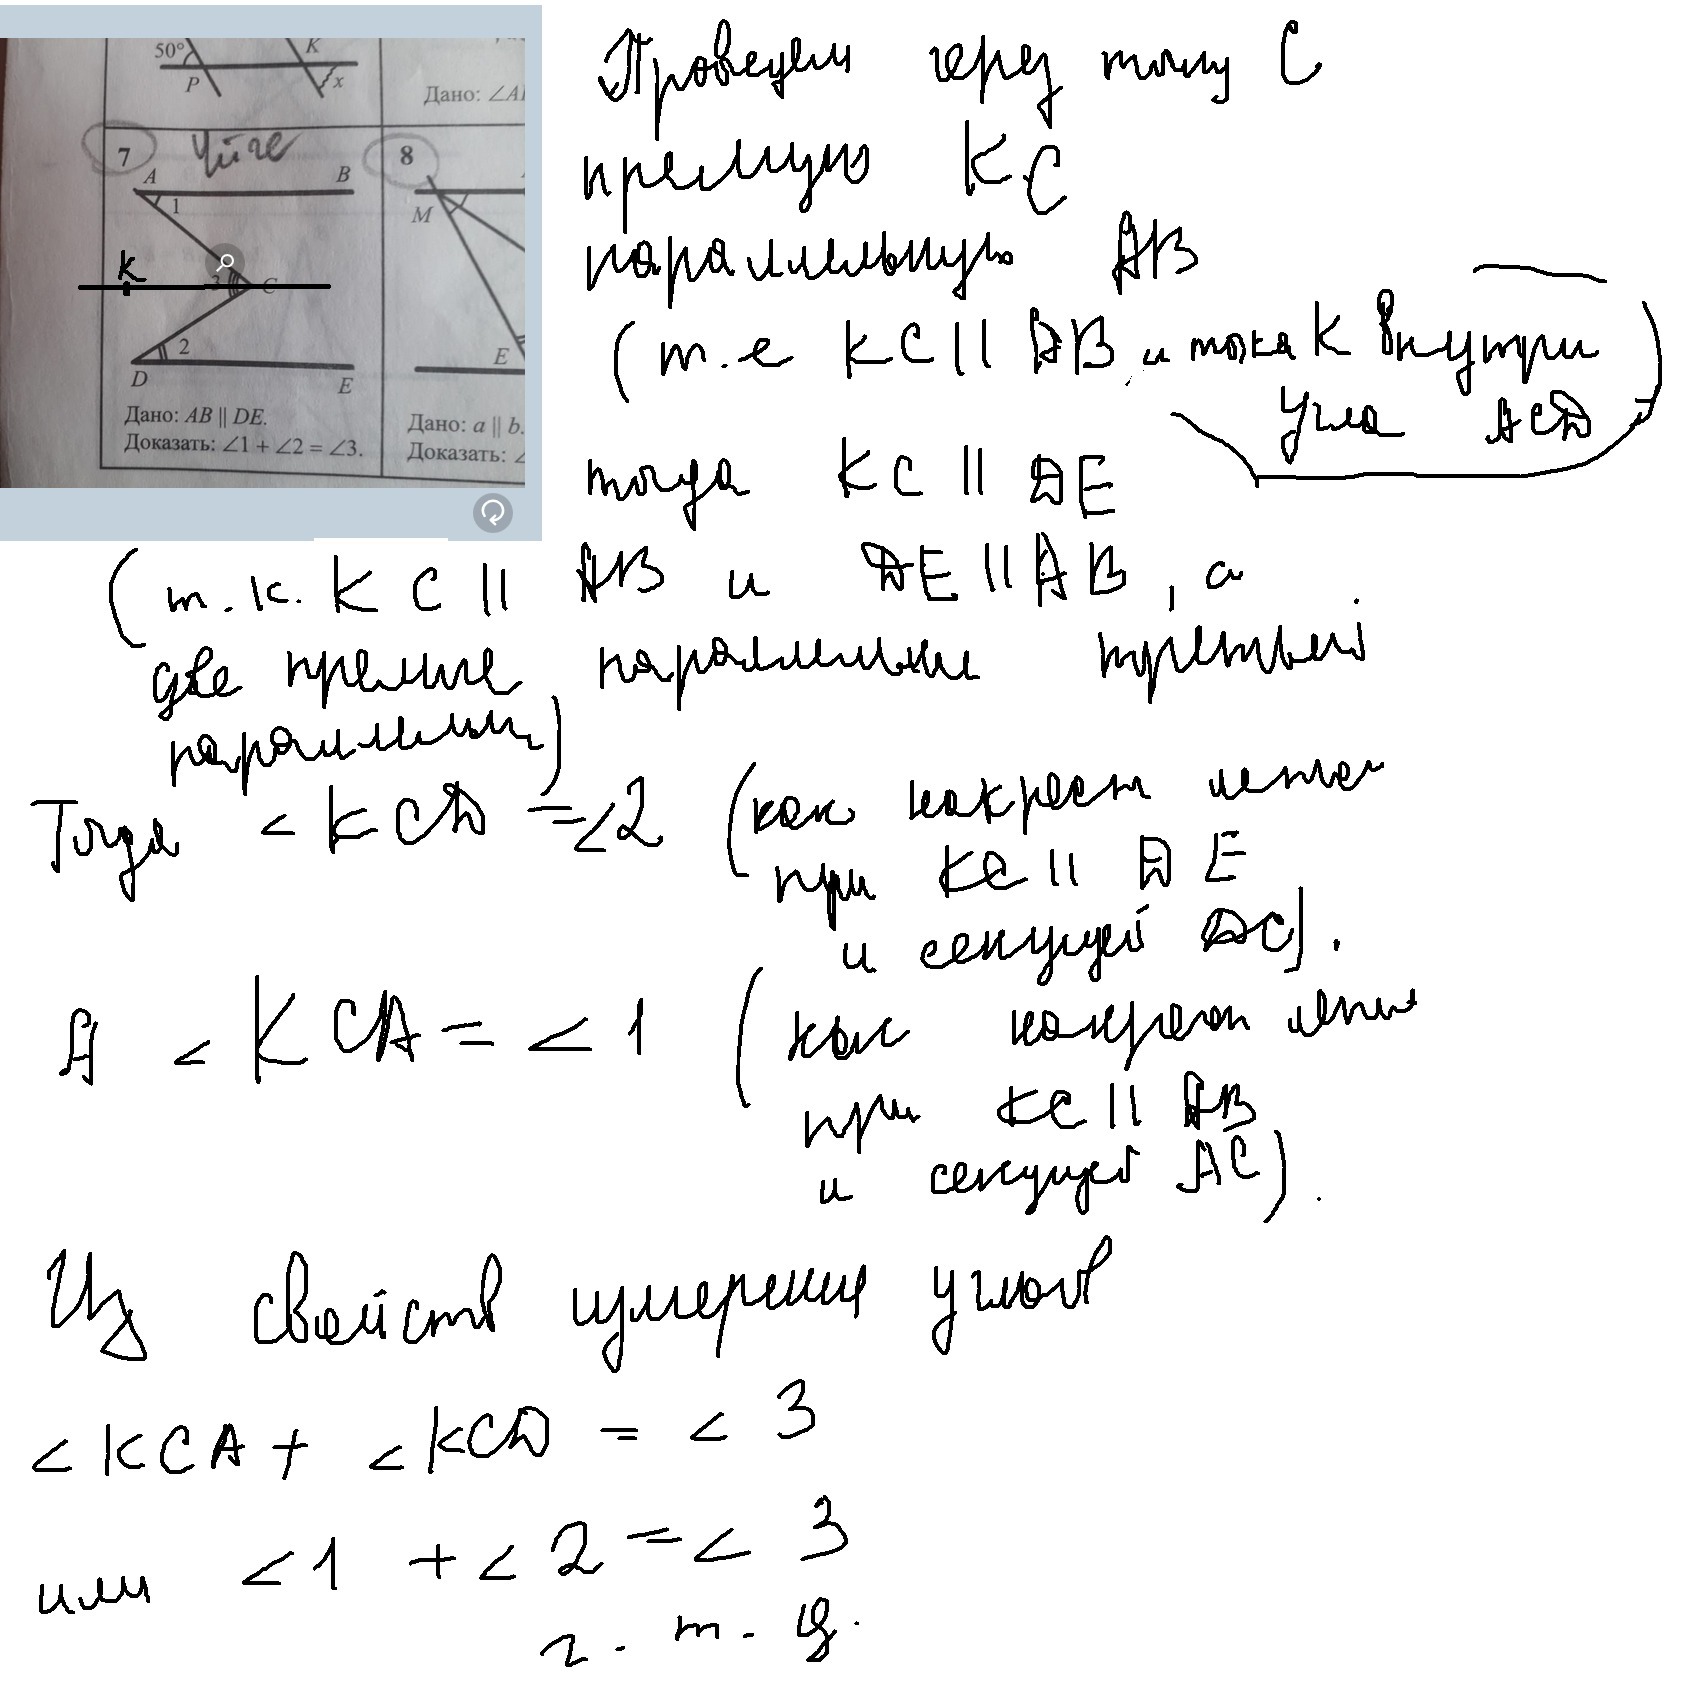 50°
K
P
x
Дано: ∠A
7
Үйге
8
A
B
1
M
K
3
C
2
E
D
E
Дано: AB || DE.
Доказать: ∠1 + ∠2 = ∠3.
Дано: a || b.
Доказать: ∠
Проведем через точку C
прямую KC
параллельную AB
(т.е KC || AB и точка K внутри
угла ACD
тогда KC || DE
(т.к. KC || AB и DE || AB, а
две прямые параллельные третьей
параллельны)
Тогда <KCD = <2 (как накрест лежащ
при KC || DE
и секущей DC).
А <KCA = <1 (как накрест лежащ
при KC || AB
и секущей AC).
Из свойств измерения углов
<KCA + <KCD = <3
или <1 + <2 = <3
ч.т.д.